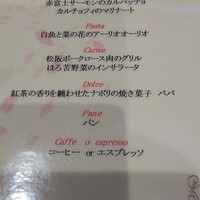 赤富士サーモンのカルパッチョ
カルチョフィのマリナート
Pasta
白魚と菜の花のアーリオオーリオ
Carne
松阪ポークロース肉のグリル
ほろ苦野菜のインサラータ
Dolce
紅茶の香りを纏わせたナポリの焼き菓子 ババ
Pane
パン
Caffe o espresso
コーヒー or エスプレッソ